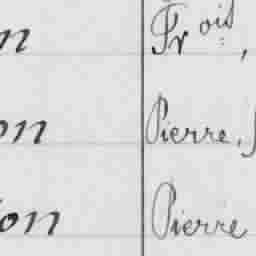 n Fr.ois,
on Pierre,
on Pierre